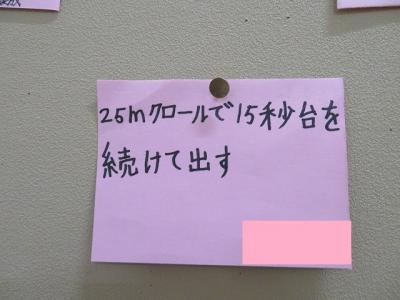 25mクロールで15秒台を
続けて出す